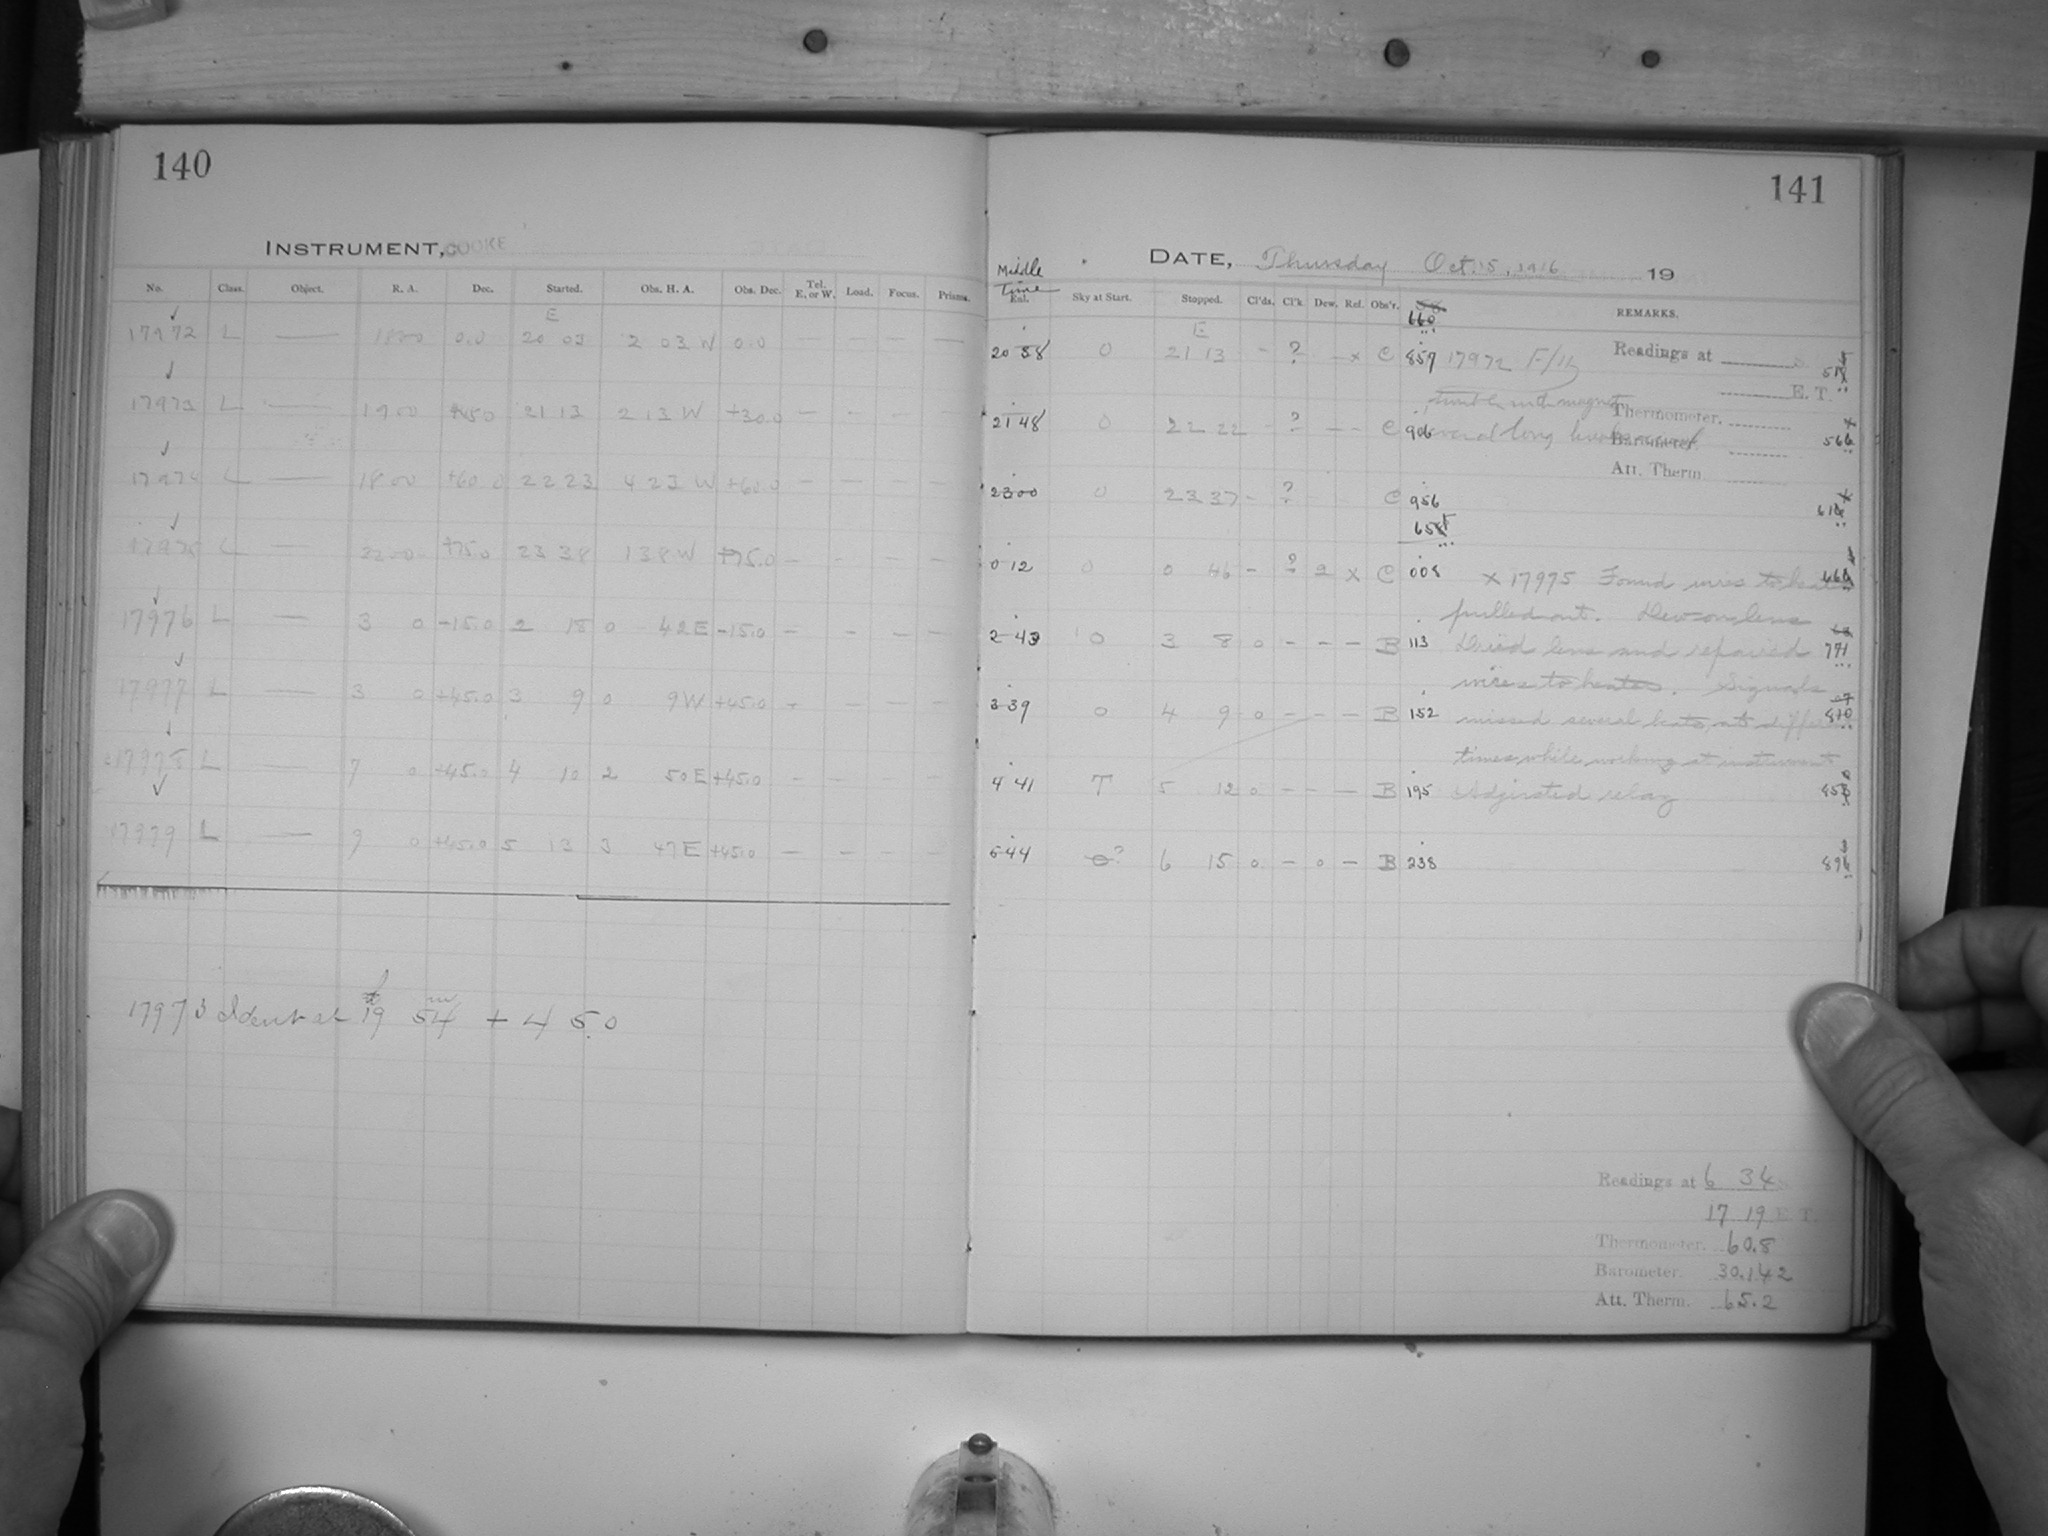 140
INSTRUMENT, COOKE
No. Class. Object. R. A. Dec. Started. Obs. H. A. Obs. Dec. Tel. E, or W. Load. Focus. Prisms.
E
17972 L — 18 00 0.0 20 03 2 03 W 0.0 — — — —
17973 L — 19 00 +45.0 21 13 2 13 W +30.0 — — — —
17974 L — 18 00 +60.0 22 23 4 23 W +60.0 — — — —
17975 L — 22 00 +75.0 23 38 1 38 W +75.0 — — — —
17976 L — 3 0 -15.0 2 18 0 42 E -15.0 — — — —
17977 L — 3 0 +45.0 3 9 0 9 W +45.0 — — — —
17978 L — 7 0 +45.0 4 10 2 50 E +45.0 — — — —
17979 L — 9 0 +45.0 5 13 3 47 E +45.0 — — — —
17973 Ident at 19 54 + 45.0
141
DATE, Thursday Oct. 5, 1916 19
Middle Time
Sky at Start. Stopped. Cl'ds. Cl'k. Dew. Ref. Obs'r. REMARKS.
660
E
20 38 0 21 13 - ? — x C 857 17972 F/16
Readings at S.
E. T.
trouble with magnet
Thermometer.
21 48 0 22 22 - ? — — C 906 several long
Barometer.
Att. Therm
23 00 0 23 37 - ? - C 956
0 12 0 0 46 - ? 2 x C 008 x 17975 Found wires to heater
pulled out. Dew on lens
2 43 0 3 8 0 - - - B 113 Dried lens and repaired 771
wires to heater. Signals
3 39 0 4 9 0 - - - B 152 missed several beats at different 810
times while working at instrument
4 41 T 5 12 0 - - - B 195 Adjusted relay
5 44 0? 6 15 0 - 0 - B 238
Readings at 6 34 S.
17 19 E. T.
Thermometer. 60.8
Barometer. 30.142
Att. Therm. 65.2